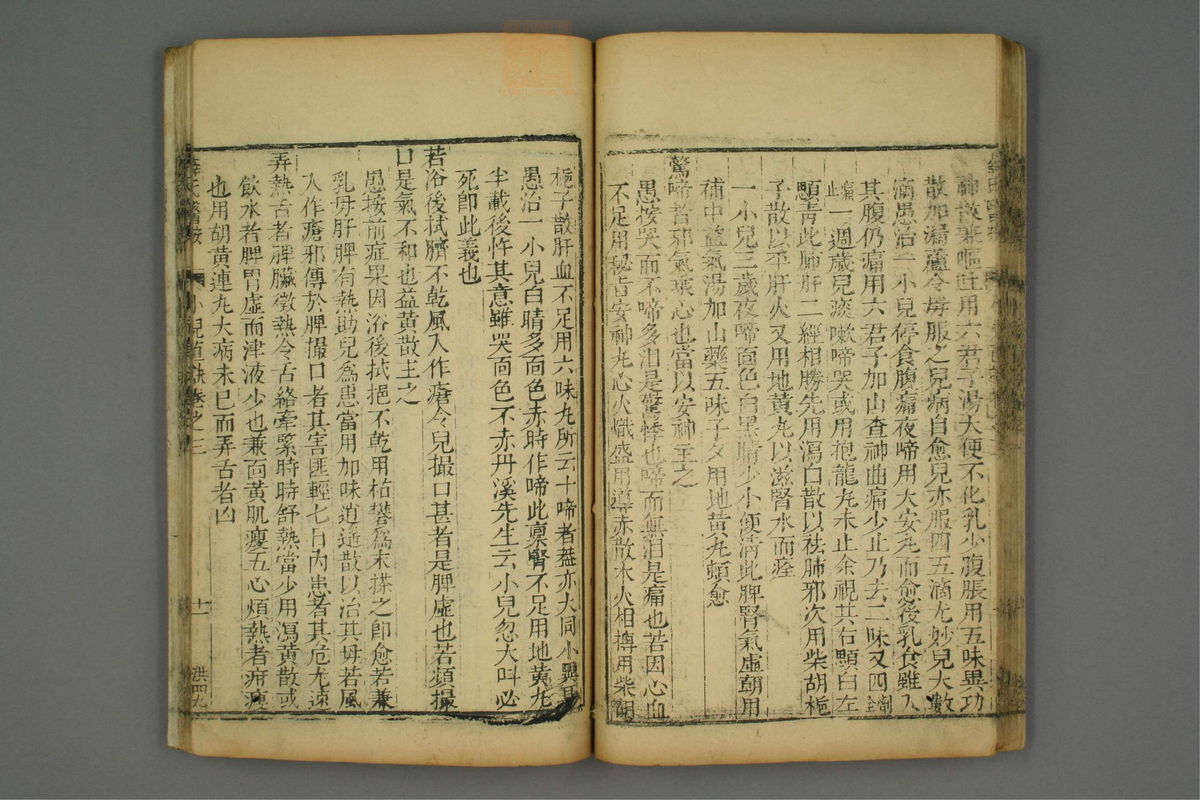 神散兼嘔吐用六君子湯大便不化乳少腹脹用五味異功
散加漏蘆令母服之兒病自愈兒亦服四五滴尤妙兒大敷
滴愚治一小兒停食腹痛夜啼用大安丸而愈後乳食雖入
其腹仍痛用六君子加山查神曲痛少止乃去二味又四劑
痛止一週歲兒痰嗽啼哭或用抱龍丸未止余視其右顋白左
顋青此肺肝二經相勝先用瀉白散以祛肺邪次用柴胡梔
子散以平肝火又用地黃丸以滋腎水而痊
一小兒三歲夜啼面色白黑睛少小便清此脾腎氣虛朝用
補中益氣湯加山藥五味子夕用地黃丸頓愈
驚啼者邪氣乘心也當以安神主之
愚按哭而不啼多泪是驚悸也啼而無泪是痛也若因心血
不足用秘旨安神丸心火熾盛用導赤散木火相摶用柴胡
梔子散肝血不足用六味丸所云十啼者葢亦大同小異耳
愚治一小兒白睛多面色赤時作啼此禀腎不足用地黃丸
半載後忤其意雖哭面色不赤丹溪先生云小兒忽大叫必
死卽此義也
若浴後拭臍不乾風入作瘡令兒撮口甚者是脾虛也若頻撮
口是氣不和也益黃散主之
愚按前症果因浴後拭挹不乾用枯礬爲末摻之卽愈若兼
乳母肝脾有熱助兒爲患當用加味逍遙散以治其母若風
入作瘡邪傳於脾撮口者其害匪輕七日內患者其危尤速
弄熱舌者脾臟微熱令舌絡牽緊時時舒熱當少用瀉黃散或
飲水者脾胃虛而津液少也兼面黃肌瘦五心煩熱者疳瘦
也用胡黃連丸大病未已而弄舌者凶
小兒直訣卷之三
十一
洪四九